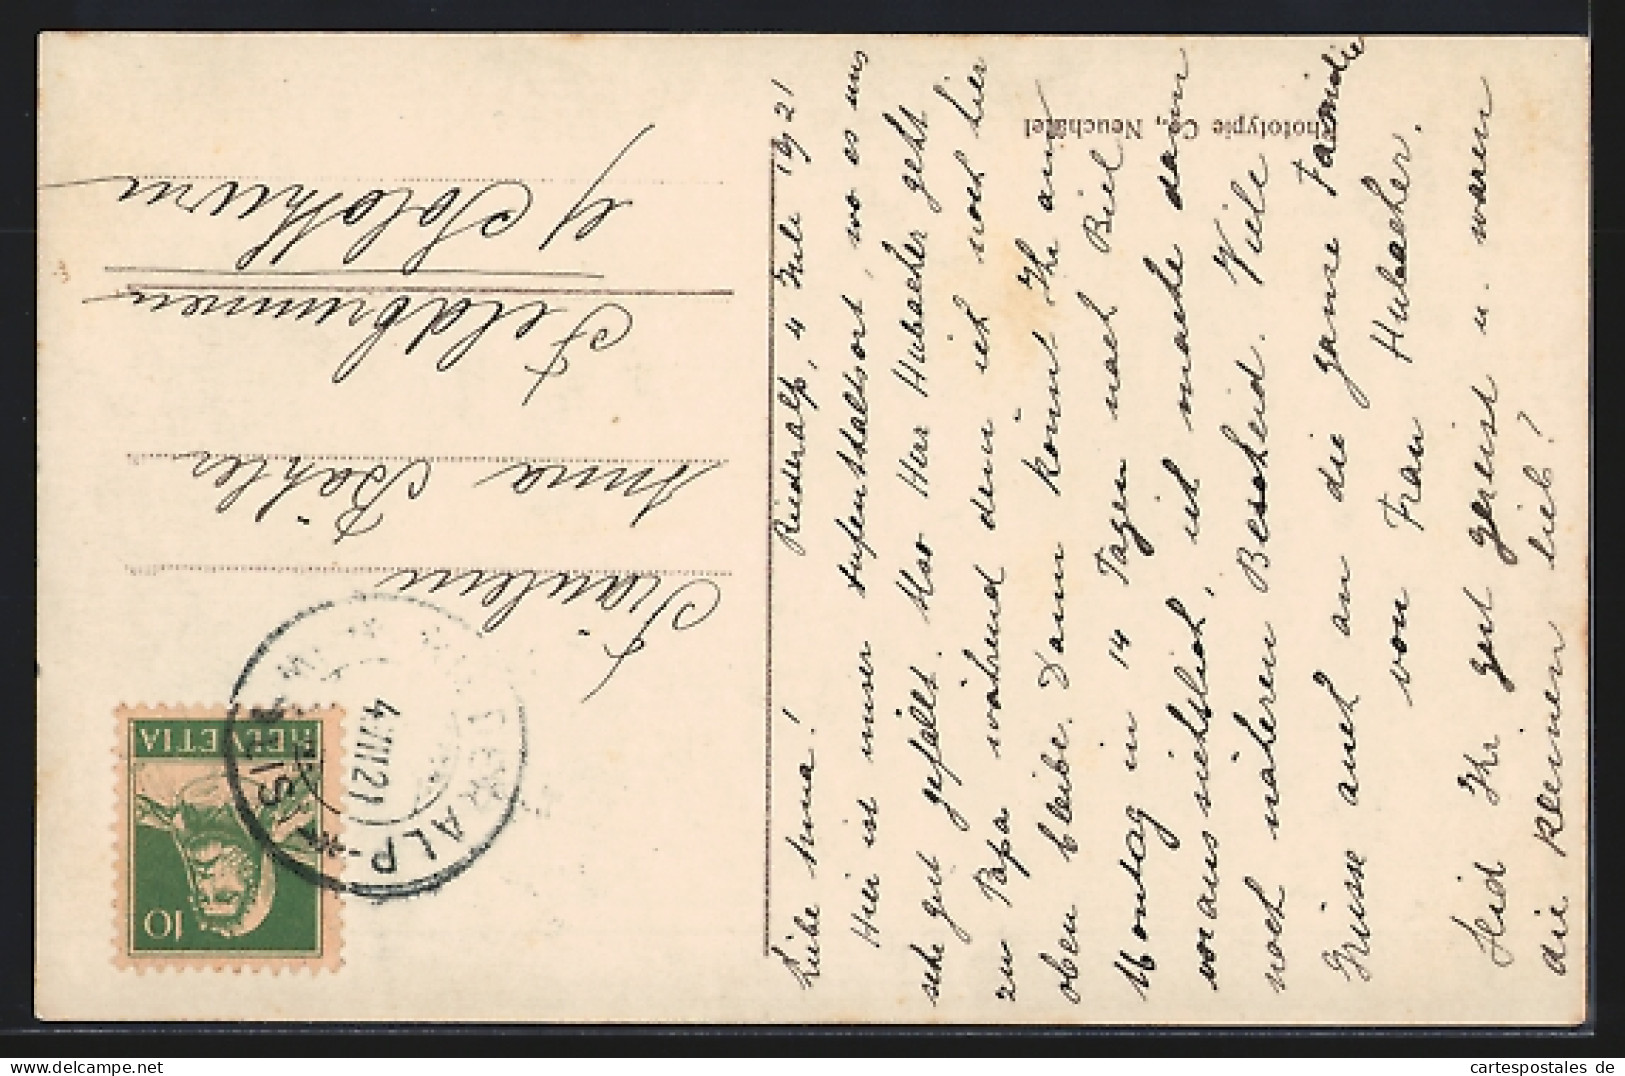 Riederalp, 4 Juli 1921
Liebe Anna!
Hier ist unser Aufenthaltsort, wo es uns
sehr gut gefällt. Mso Herr Hubacher geht
zu Papa während dem ich noch hier
oben bleibe. Dann könnt Ihr am
Montag in 14 Tagen nach Biel
voraussichtlich, ich mache dann
noch näheren Bescheid. Viele
Grüsse auch an die ganze Familie
von Frau Hubacher.
Seid Ihr gut gereist u. waren
die kleinen lieb?
Fräulein
Anna Bähler
Feldbrunnen
b/ Solothurn
Phototypie Co., Neuchâtel
HELVETIA
10
RIEDERALP
4.VII.21
cartespostales de